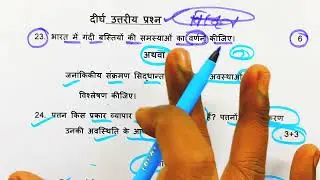 दीर्घ उत्तरीय प्रश्न
23. भारत में गंदी बस्तियों की समस्याओं का वर्णन कीजिए। 6
अथवा
जनांकिकीय संक्रमण सिद्धान्त अवस्थाओं
विश्लेषण कीजिए।
24. पत्तन किस प्रकार व्यापार हैं? पत्तनों
उनकी अवस्थिति के 3+3